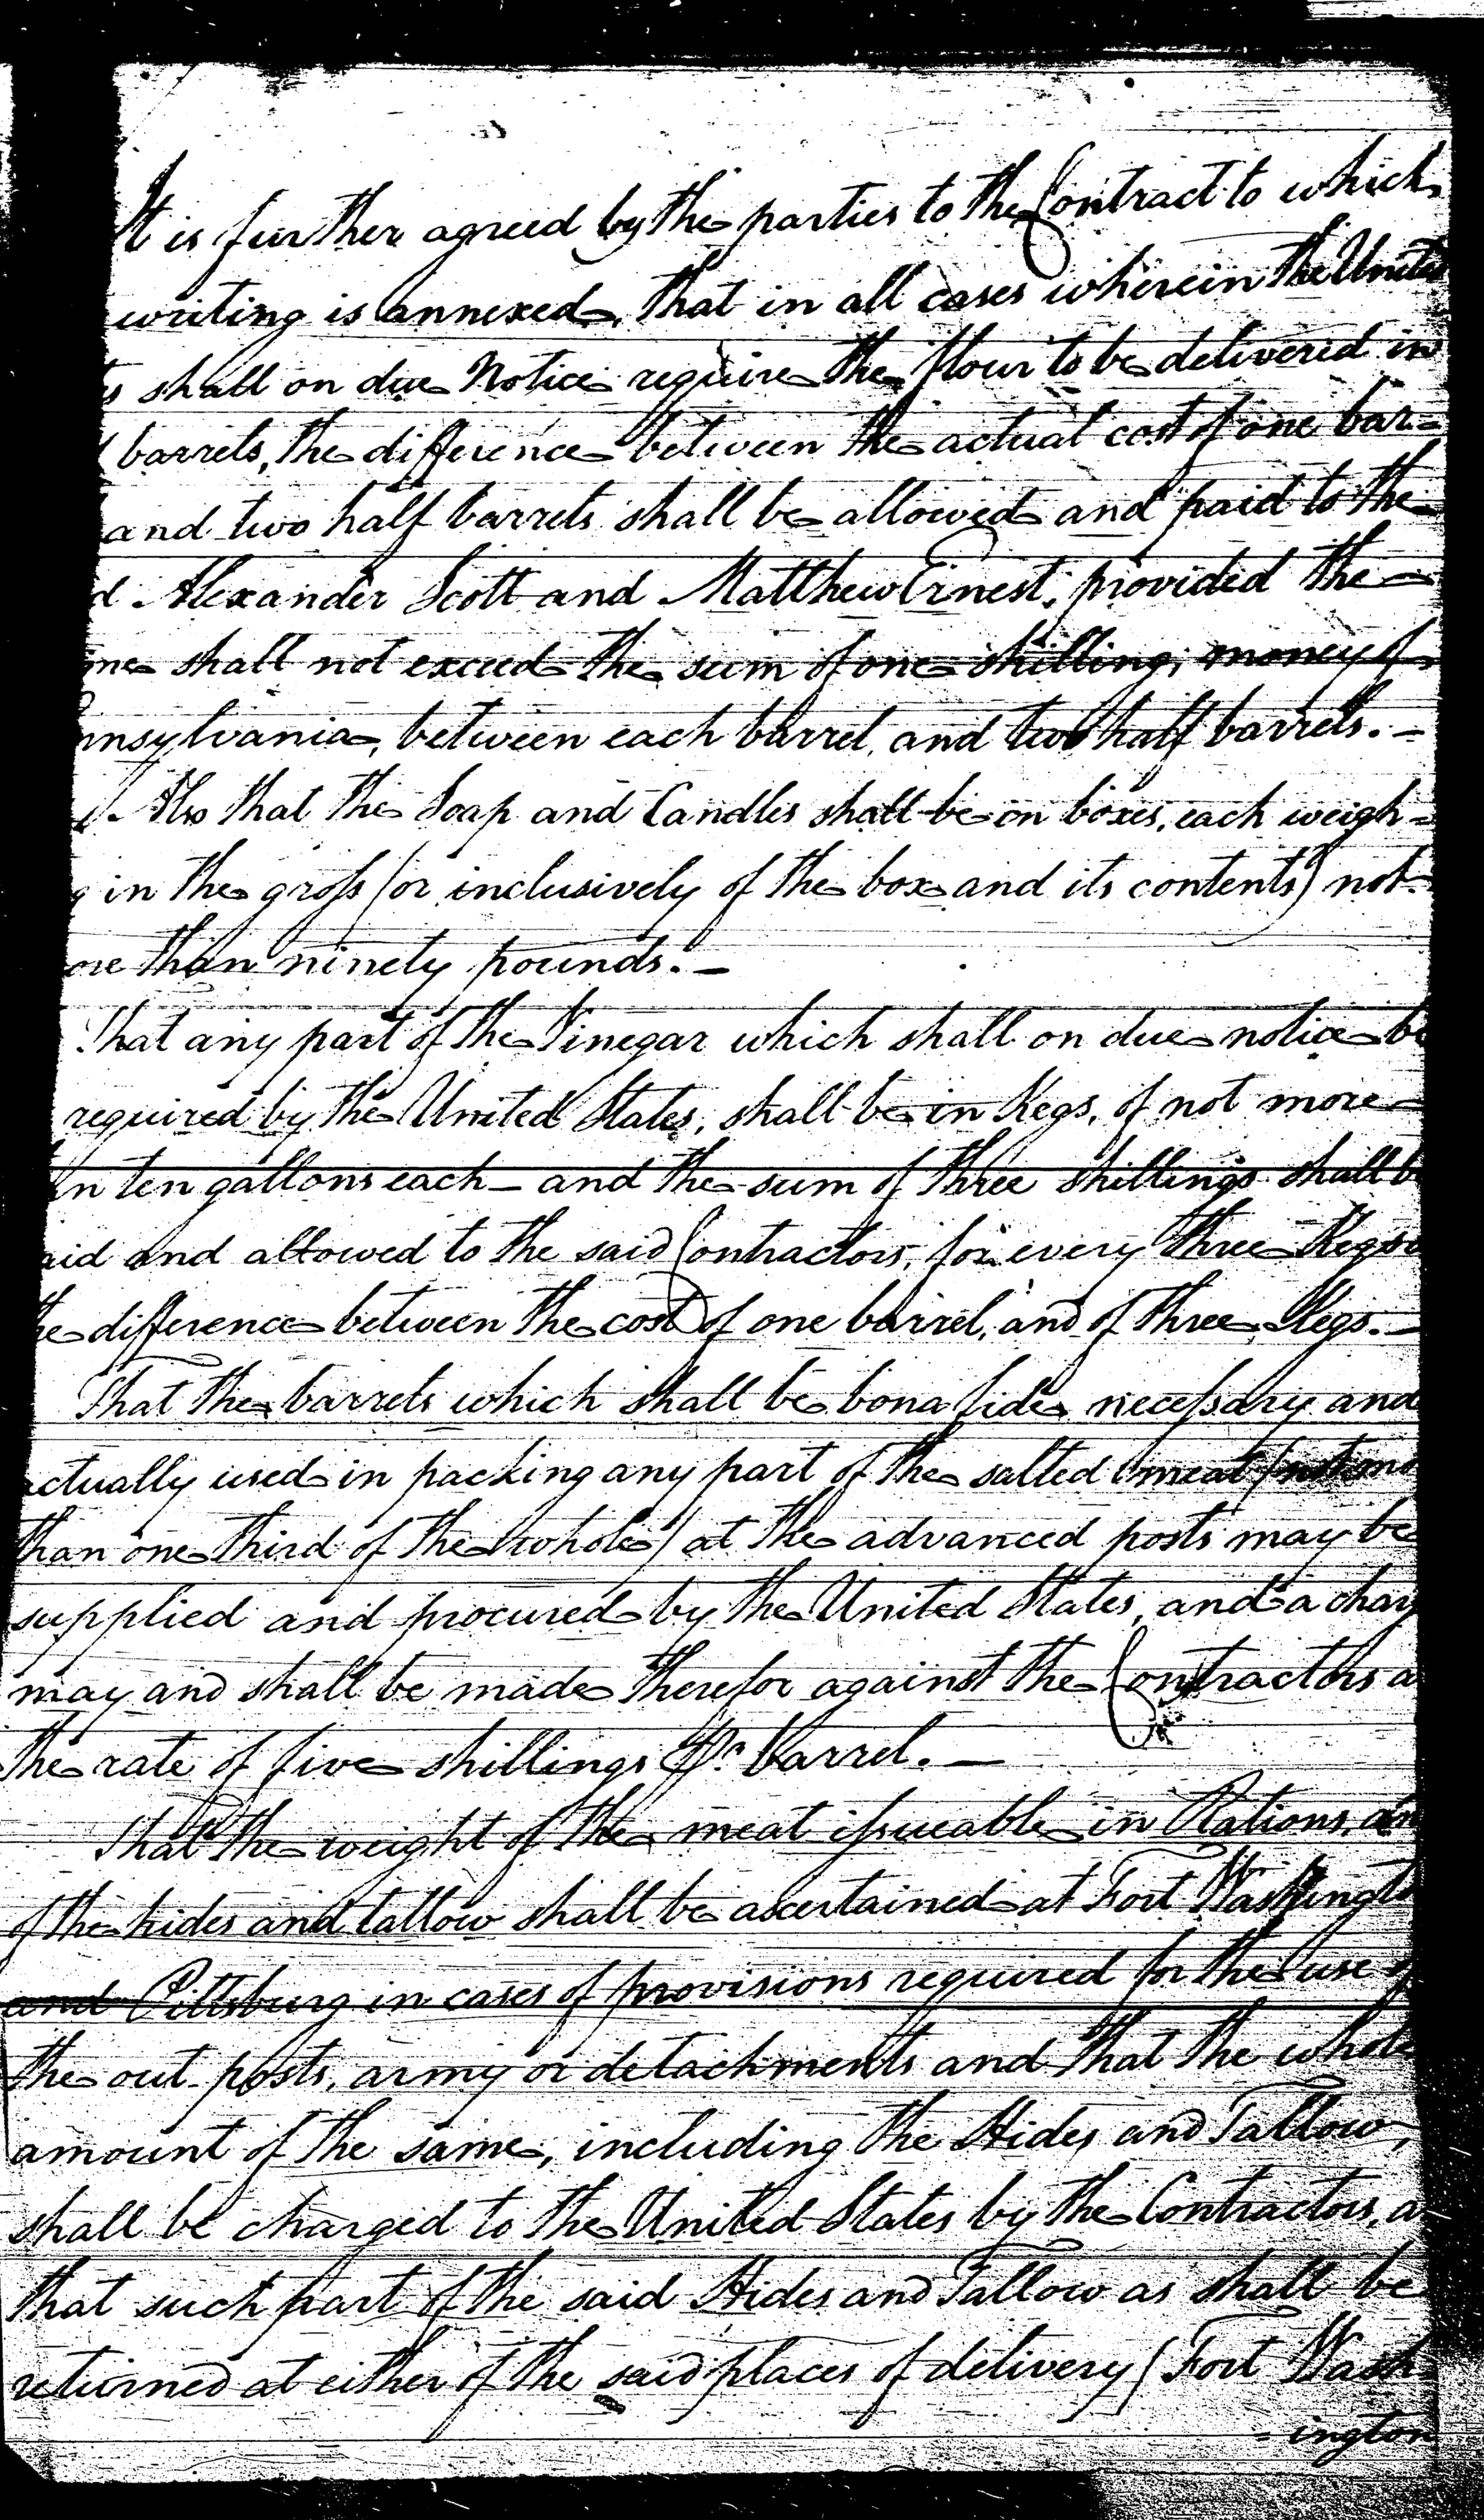 It is further agreed by the parties to the Contract to which
writing is annexed, that in all cases wherein the United
s shall on due Notice require the flour to be delivered in
barrels, the difference between the actual cost of one bar=
and two half barrels shall be allowed and paid to the
d Alexander Scott and Matthew Ernest, provided the
me shall not exceed the sum of one shilling, money of
nnsylvania, between each barrel, and two half barrels. -
Also that the Soap and Candles shall be on boxes, each weigh=
g in the gross (or inclusively of the box and its contents) not
ore than ninety pounds. -
That any part of the Vinegar which shall on due notice be
required by the United States, shall be in Kegs, of not more
an ten gallons each - and the sum of three shillings shall b
aid and allowed to the said Contractors, for every three Kegs
he difference between the cost of one barrel, and of three Kegs. -
That the barrels which shall be bona fide necessary and
actually used in packing any part of the salted meat (not
than one third of the whole) at the advanced posts may be
supplied and procured by the United States, and a charg
may and shall be made therefor against the Contractors a
the rate of five shillings Pr. barrel. -
That the weight of the meat issueable in Rations, an
of the hides and tallow shall be ascertained at Fort Washingto
and Pittsburg in cases of provisions required for the use of
the out posts, army or detachments and that the whole
amount of the same, including the Hides and Tallow,
shall be charged to the United States by the Contractors, a
that such part of the said Hides and Tallow as shall be
returned at either of the said places of delivery (Fort Wash=
=ington